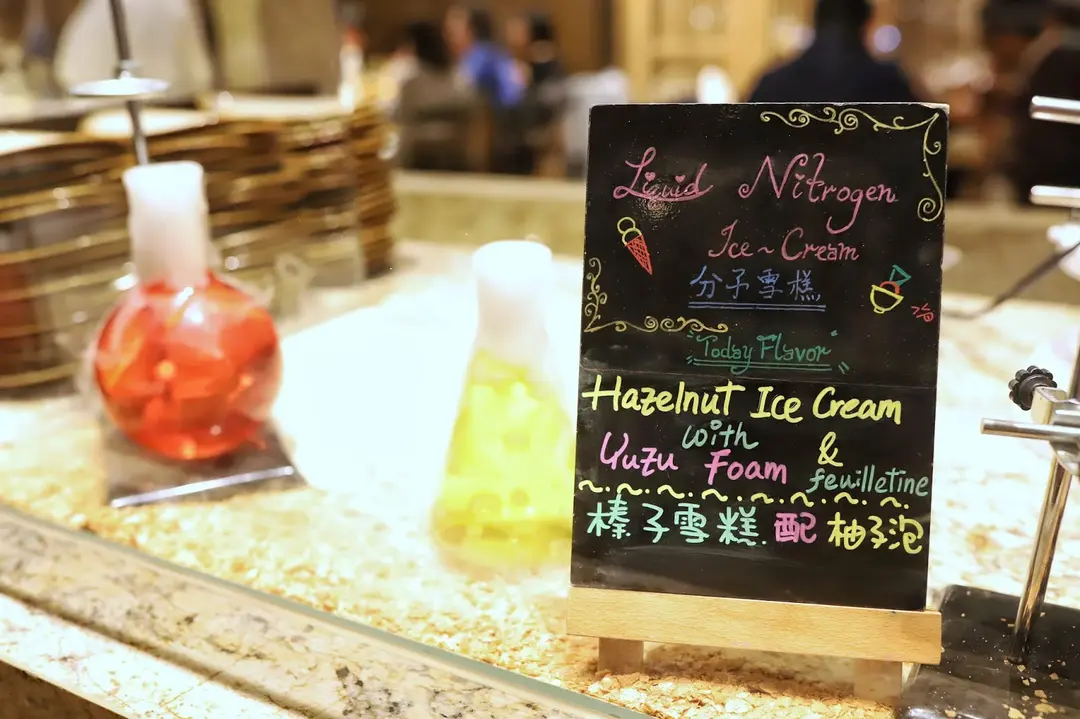 Liquid Nitrogen
Ice~Cream
分子雪糕
"Today Flavor"
Hazelnut Ice Cream
with
Yuzu Foam & feuilletine
榛子雪糕.配柚子泡